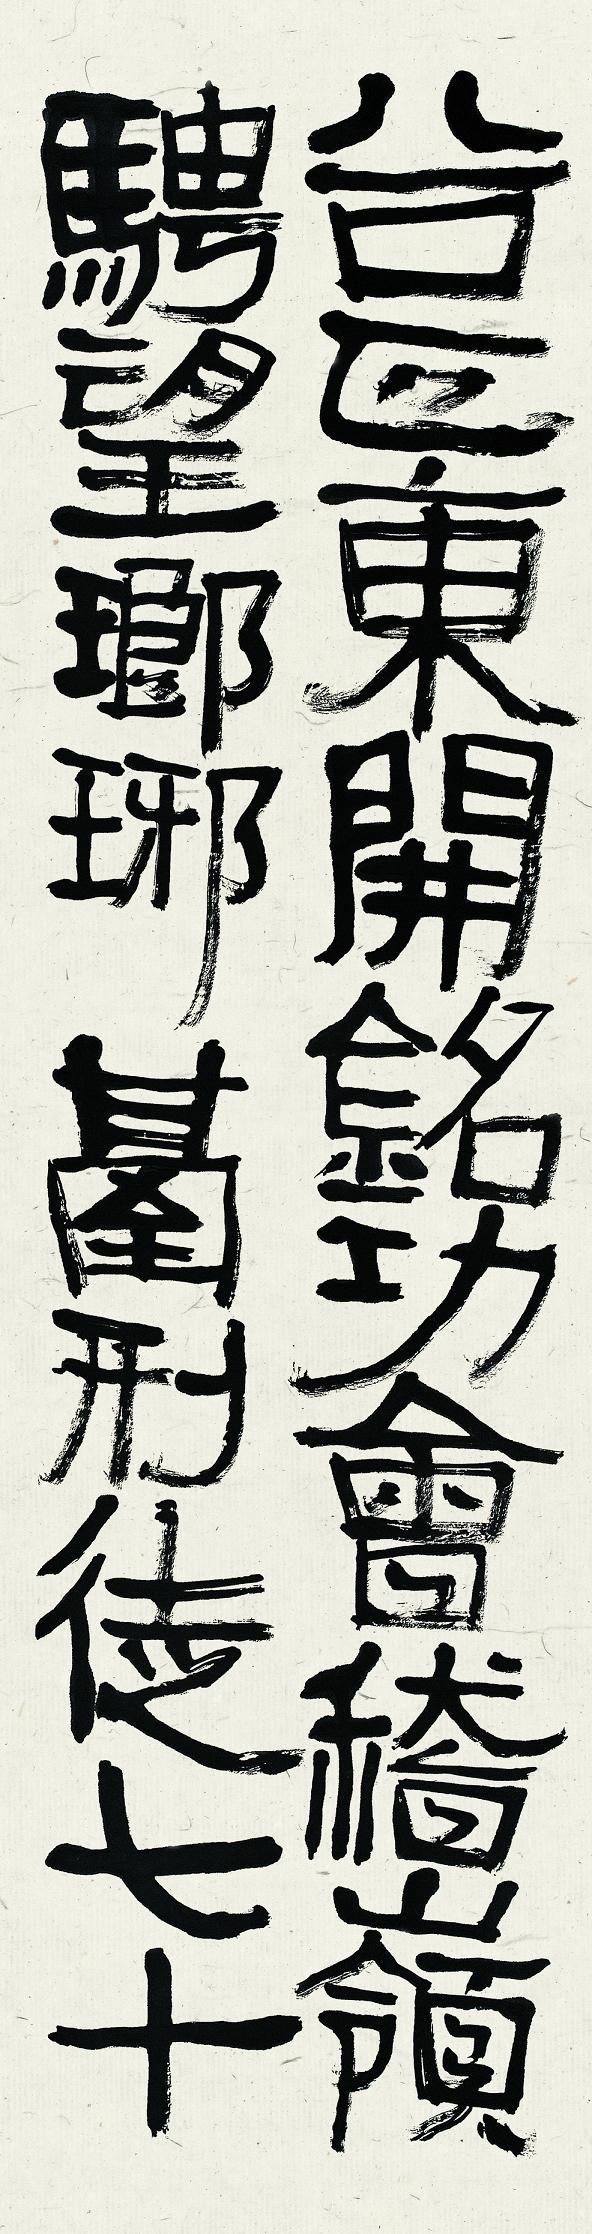 谷正東開銘功會稽嶺
騁望瑯琊臺刑徒七十